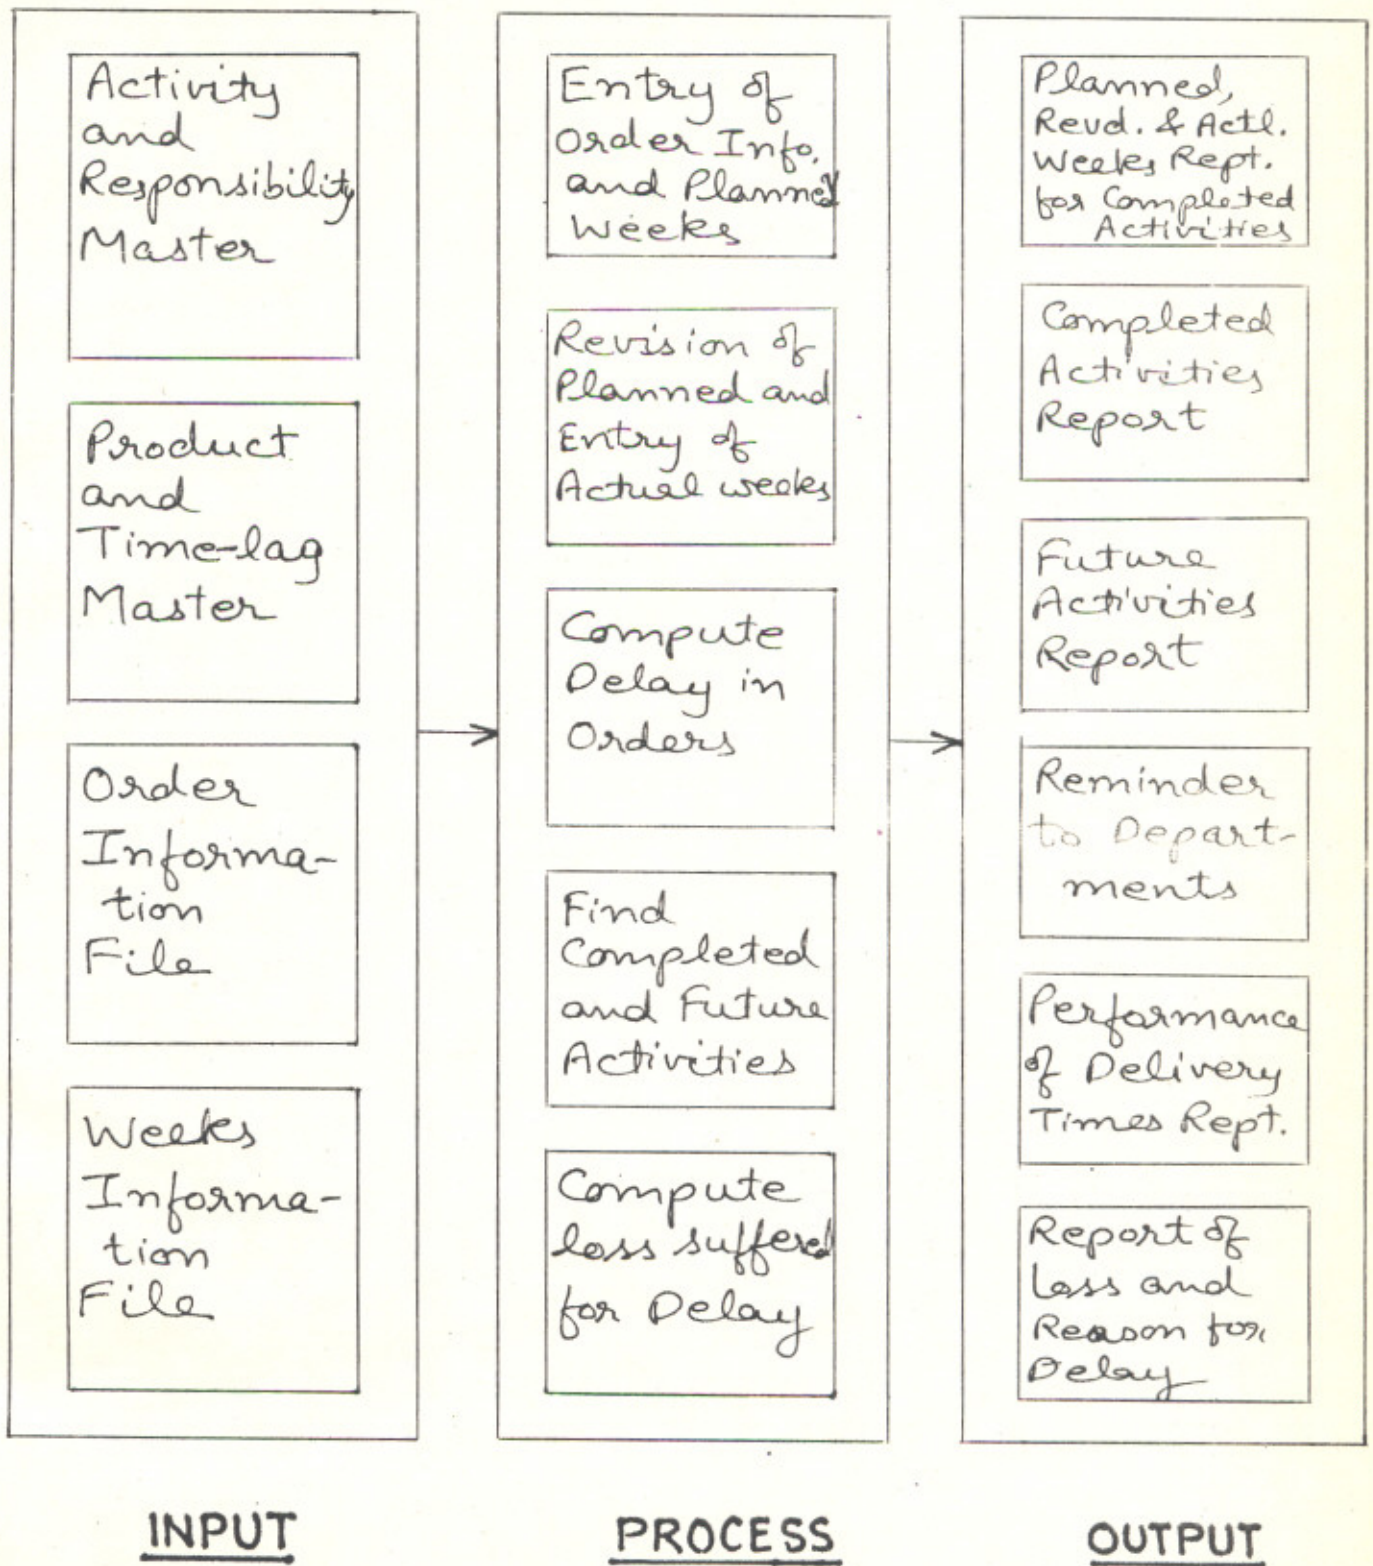 Activity
and
Responsibility
Master
Product
and
Time-lag
Master
Order
Informa-
tion
File
Weeks
Informa-
tion
File
INPUT
Entry of
Order Info.
and Planned
Weeks
Revision of
Planned and
Entry of
Actual weeks
Compute
Delay in
Orders
Find
Completed
and Future
Activities
Compute
loss suffered
for Delay
PROCESS
Planned,
Revd. & Actl.
Weeks Rept.
for Completed
Activities
Completed
Activities
Report
Future
Activities
Report
Reminder
to Depart-
ments
Performance
of Delivery
Times Rept.
Report of
Loss and
Reason for
Delay
OUTPUT